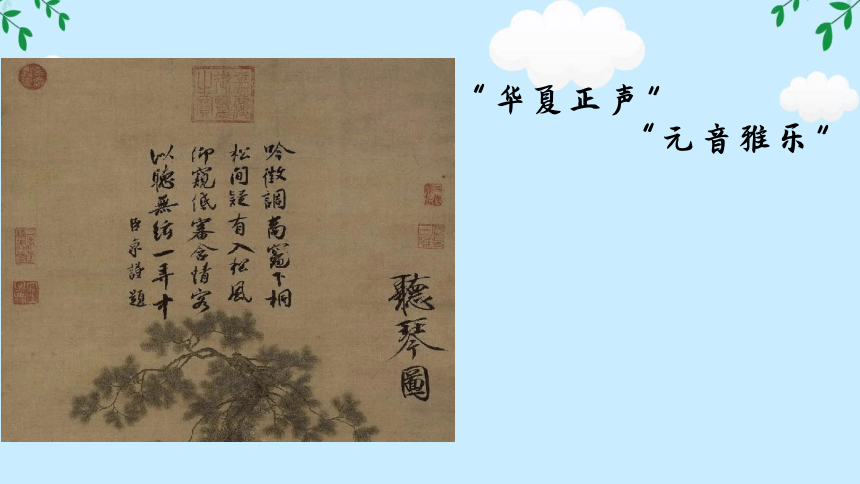 “华夏正声”
“元音雅乐”
聽琴圖
吟徵調商竈下桐
松間疑有入松風
仰窺低審含情客
以聽無絃一弄中
臣京謹題